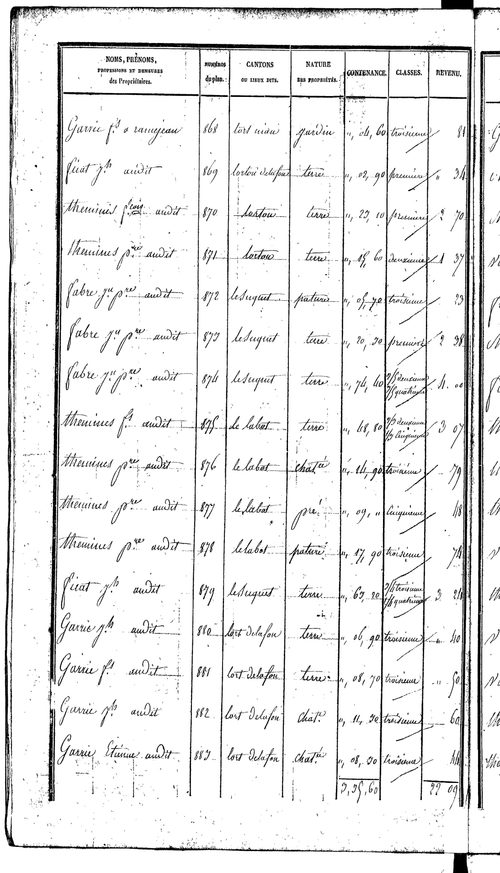 NOMS, PRÉNOMS, PROFESSIONS ET DEMEURES des Propriétaires. NUMÉROS du plan. CANTONS OU LIEUX DITS. NATURE DES PROPRIÉTÉS. CONTENANCE. CLASSES. REVENU.
Garrie fs a ramejean 868 lort jardin " 04, 60 troisieme 81
ficat jh audit 869 lortou delafon terre " 02, 90 premiere " 34
themines françois audit 870 lortou terre " 23, 10 premiere 2 70
themines pre audit 871 lortou terre " 15, 60 deuxieme 1 37
fabre jn pre audit 872 lesuguet pature " 05, 70 troisieme 23
fabre jn pre audit 873 lesuguet terre " 20, 30 premiere 2 38
fabre jn pre audit 874 lesuguet terre " 74, 40 deuxieme quatrieme 4 00
themines fs audit 875 le labat terre " 48, 80 deuxieme cinquieme 3 07
themines pre audit 876 le labat chatre " 14, 90 troisieme 79
themines pre audit 877 le labat pré " 09, " cinquieme 48
themines pre audit 878 le labat pature " 17, 90 troisieme 74
ficat jh audit 879 lesuguet terre " 63, 20 troisieme quatrieme 3 24
Garrie jh audit 880 lort delafon terre " 06, 90 troisieme " 40
Garrie fs audit 881 lort delafon terre " 08, 70 troisieme " 50
Garrie jh audit 882 lort delafon chatre " 11, 30 troisieme 60
Garrie Etienne audit 883 lort delafon chatre " 08, 30 troisieme 44
3, 35, 60 22 09